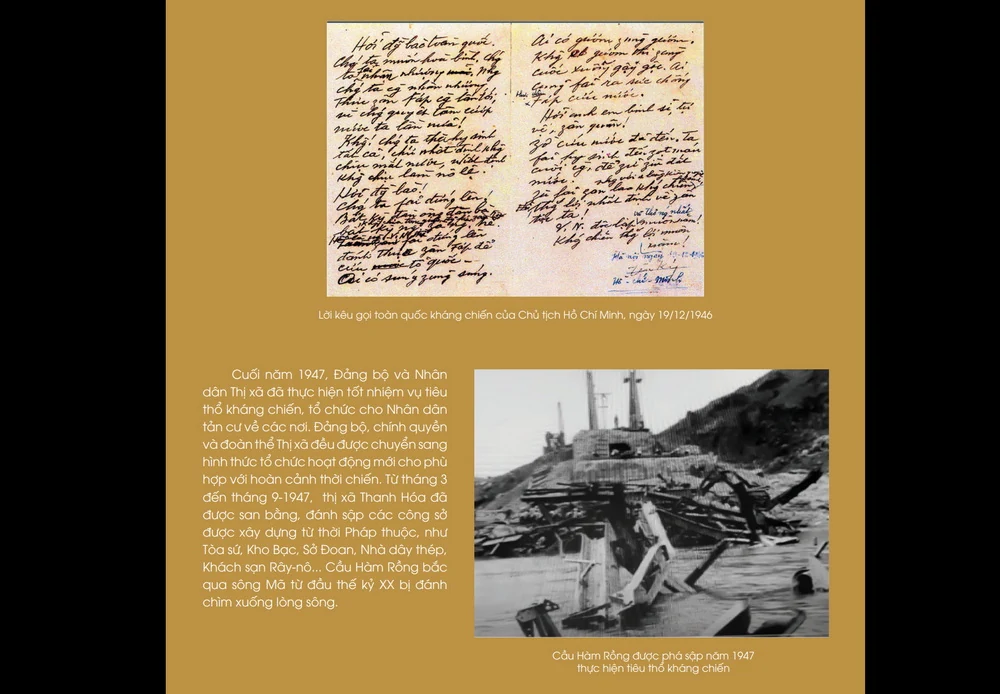 Hỡi đồng bào toàn quốc.
Chúng ta muốn hoà bình, chúng
ta nhân nhượng
chúng ta nhân nhượng
thực zân Fáp lấn tới,
vì chúng quyết tâm cướp
nước ta lần nữa!
Không! chúng ta thà hy sinh
tất cả, chứ nhất định không
chịu mất nước, nhất định
không chịu làm nô lệ.
Hỡi đồng bào!
Chúng ta fải đứng lên!
fải đứng lên
đánh thực zân Fáp để
cứu tổ quốc
Ai có súng zùng súng.
Ai có gươm zùng gươm.
Không có gươm thì zùng
cuốc xuổng gậy gộc. Ai
cũng fải ra sức chống
Fáp cứu nước.
Hỡi anh em binh sĩ, tự
vệ, zân quân!
Zờ cứu nước đã đến. Ta
fải hy sinh đến zọt máu
cuối cùng, để zữ zìn đất
nước.
Zù fải zan lao kháng chiến,
thắng lợi nhất định về zân
tộc ta!
và thống nhất
V.N. độc lập muôn năm!
Kháng chiến thắng lợi muôn
năm!
Hà nội ngày
Hồ - chí - minh
Lời kêu gọi toàn quốc kháng chiến của Chủ tịch Hồ Chí Minh, ngày 19/12/1946
Cuối năm 1947, Đảng bộ và Nhân
dân Thị xã đã thực hiện tốt nhiệm vụ tiêu
thổ kháng chiến, tổ chức cho Nhân dân
tản cư về các nơi. Đảng bộ, chính quyền
và đoàn thể Thị xã đều được chuyển sang
hình thức tổ chức hoạt động mới cho phù
hợp với hoàn cảnh thời chiến. Từ tháng 3
đến tháng 9-1947, thị xã Thanh Hóa đã
được san bằng, đánh sập các công sở
được xây dựng từ thời Pháp thuộc, như
Tòa sứ, Kho Bạc, Sở Đoan, Nhà dây thép,
Khách sạn Rây-nô... Cầu Hàm Rồng bắc
qua sông Mã từ đầu thế kỷ XX bị đánh
chìm xuống lòng sông.
Cầu Hàm Rồng được phá sập năm 1947
thực hiện tiêu thổ kháng chiến